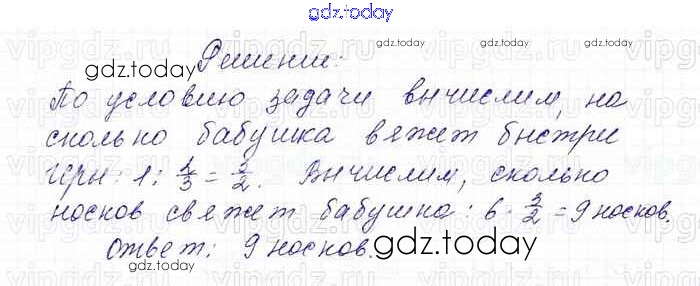 gdz.today
vipgdz.ru
Решение:
gdz.today
gdz.today
gdz.today
По условию задачи вычислим, на
сколько бабушка вяжет быстрее
Иры: 1 : 2/3 = 3/2. Вычислим, сколько
носков свяжет бабушка: 6 · 3/2 = 9 носков.
Ответ: 9 носков.
gdz.today
gdz.today
gdz.today